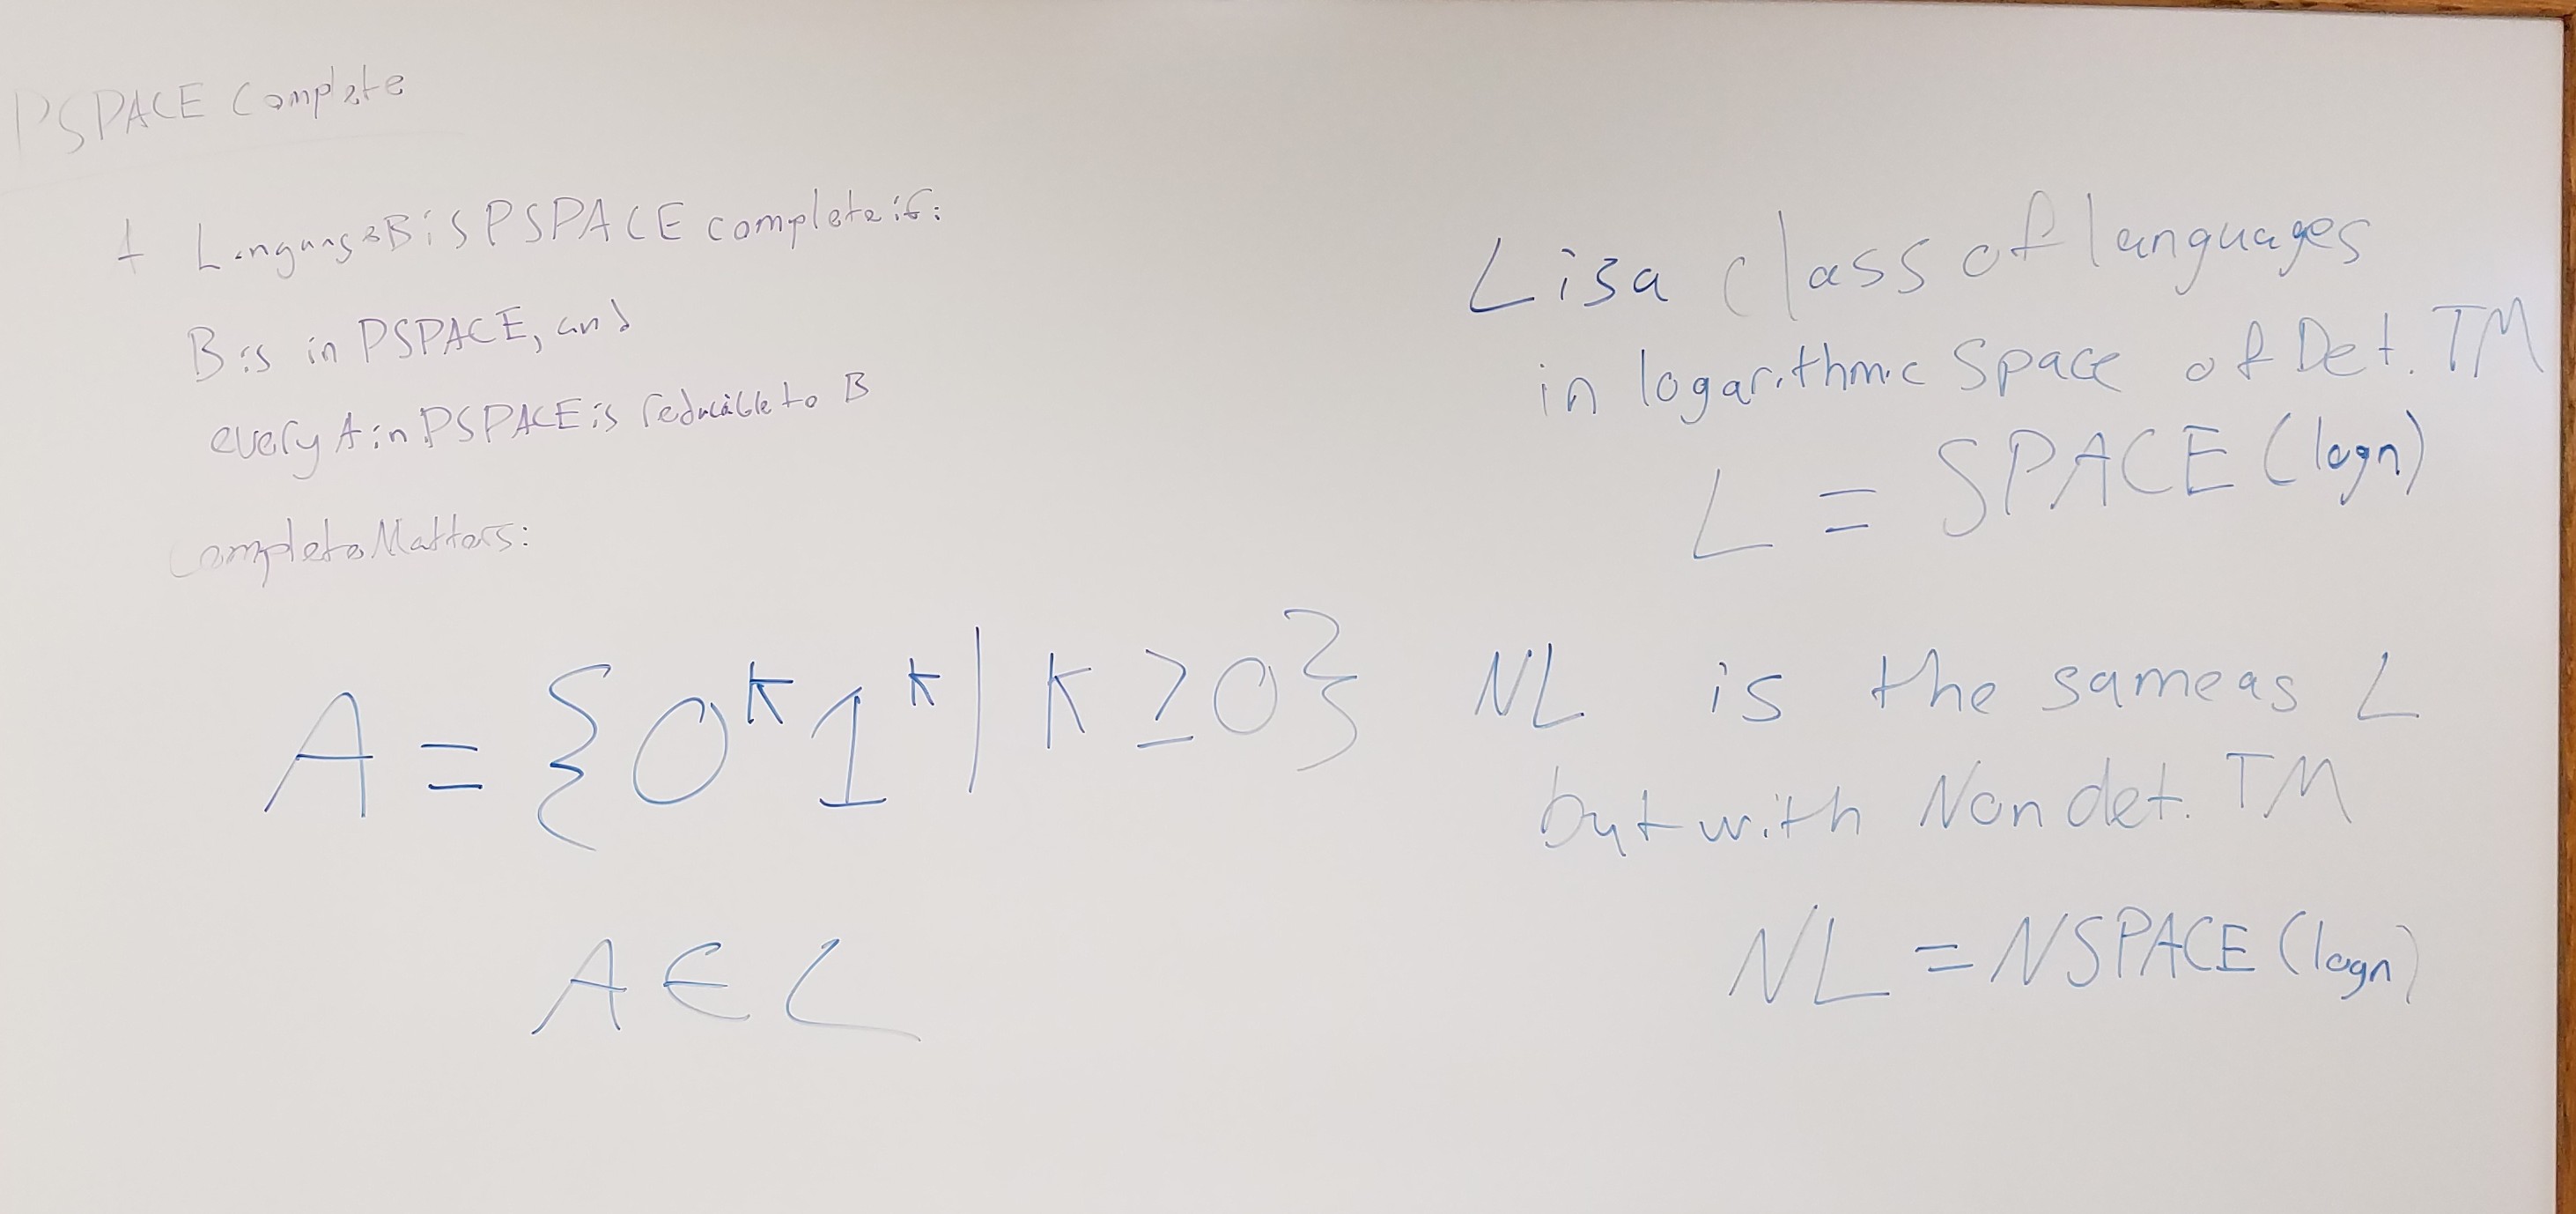 PSPACE Complete
A Language B is PSPACE complete if:
B is in PSPACE, and
every A in PSPACE is reducible to B
Complete Matters:
A = {0ᴷ1ᴷ | K ≥ 0}
A ∈ L
L is a class of languages
in logarithmic Space of Det. TM
L = SPACE (logn)
NL is the same as L
but with Non det. TM
NL = NSPACE (logn)